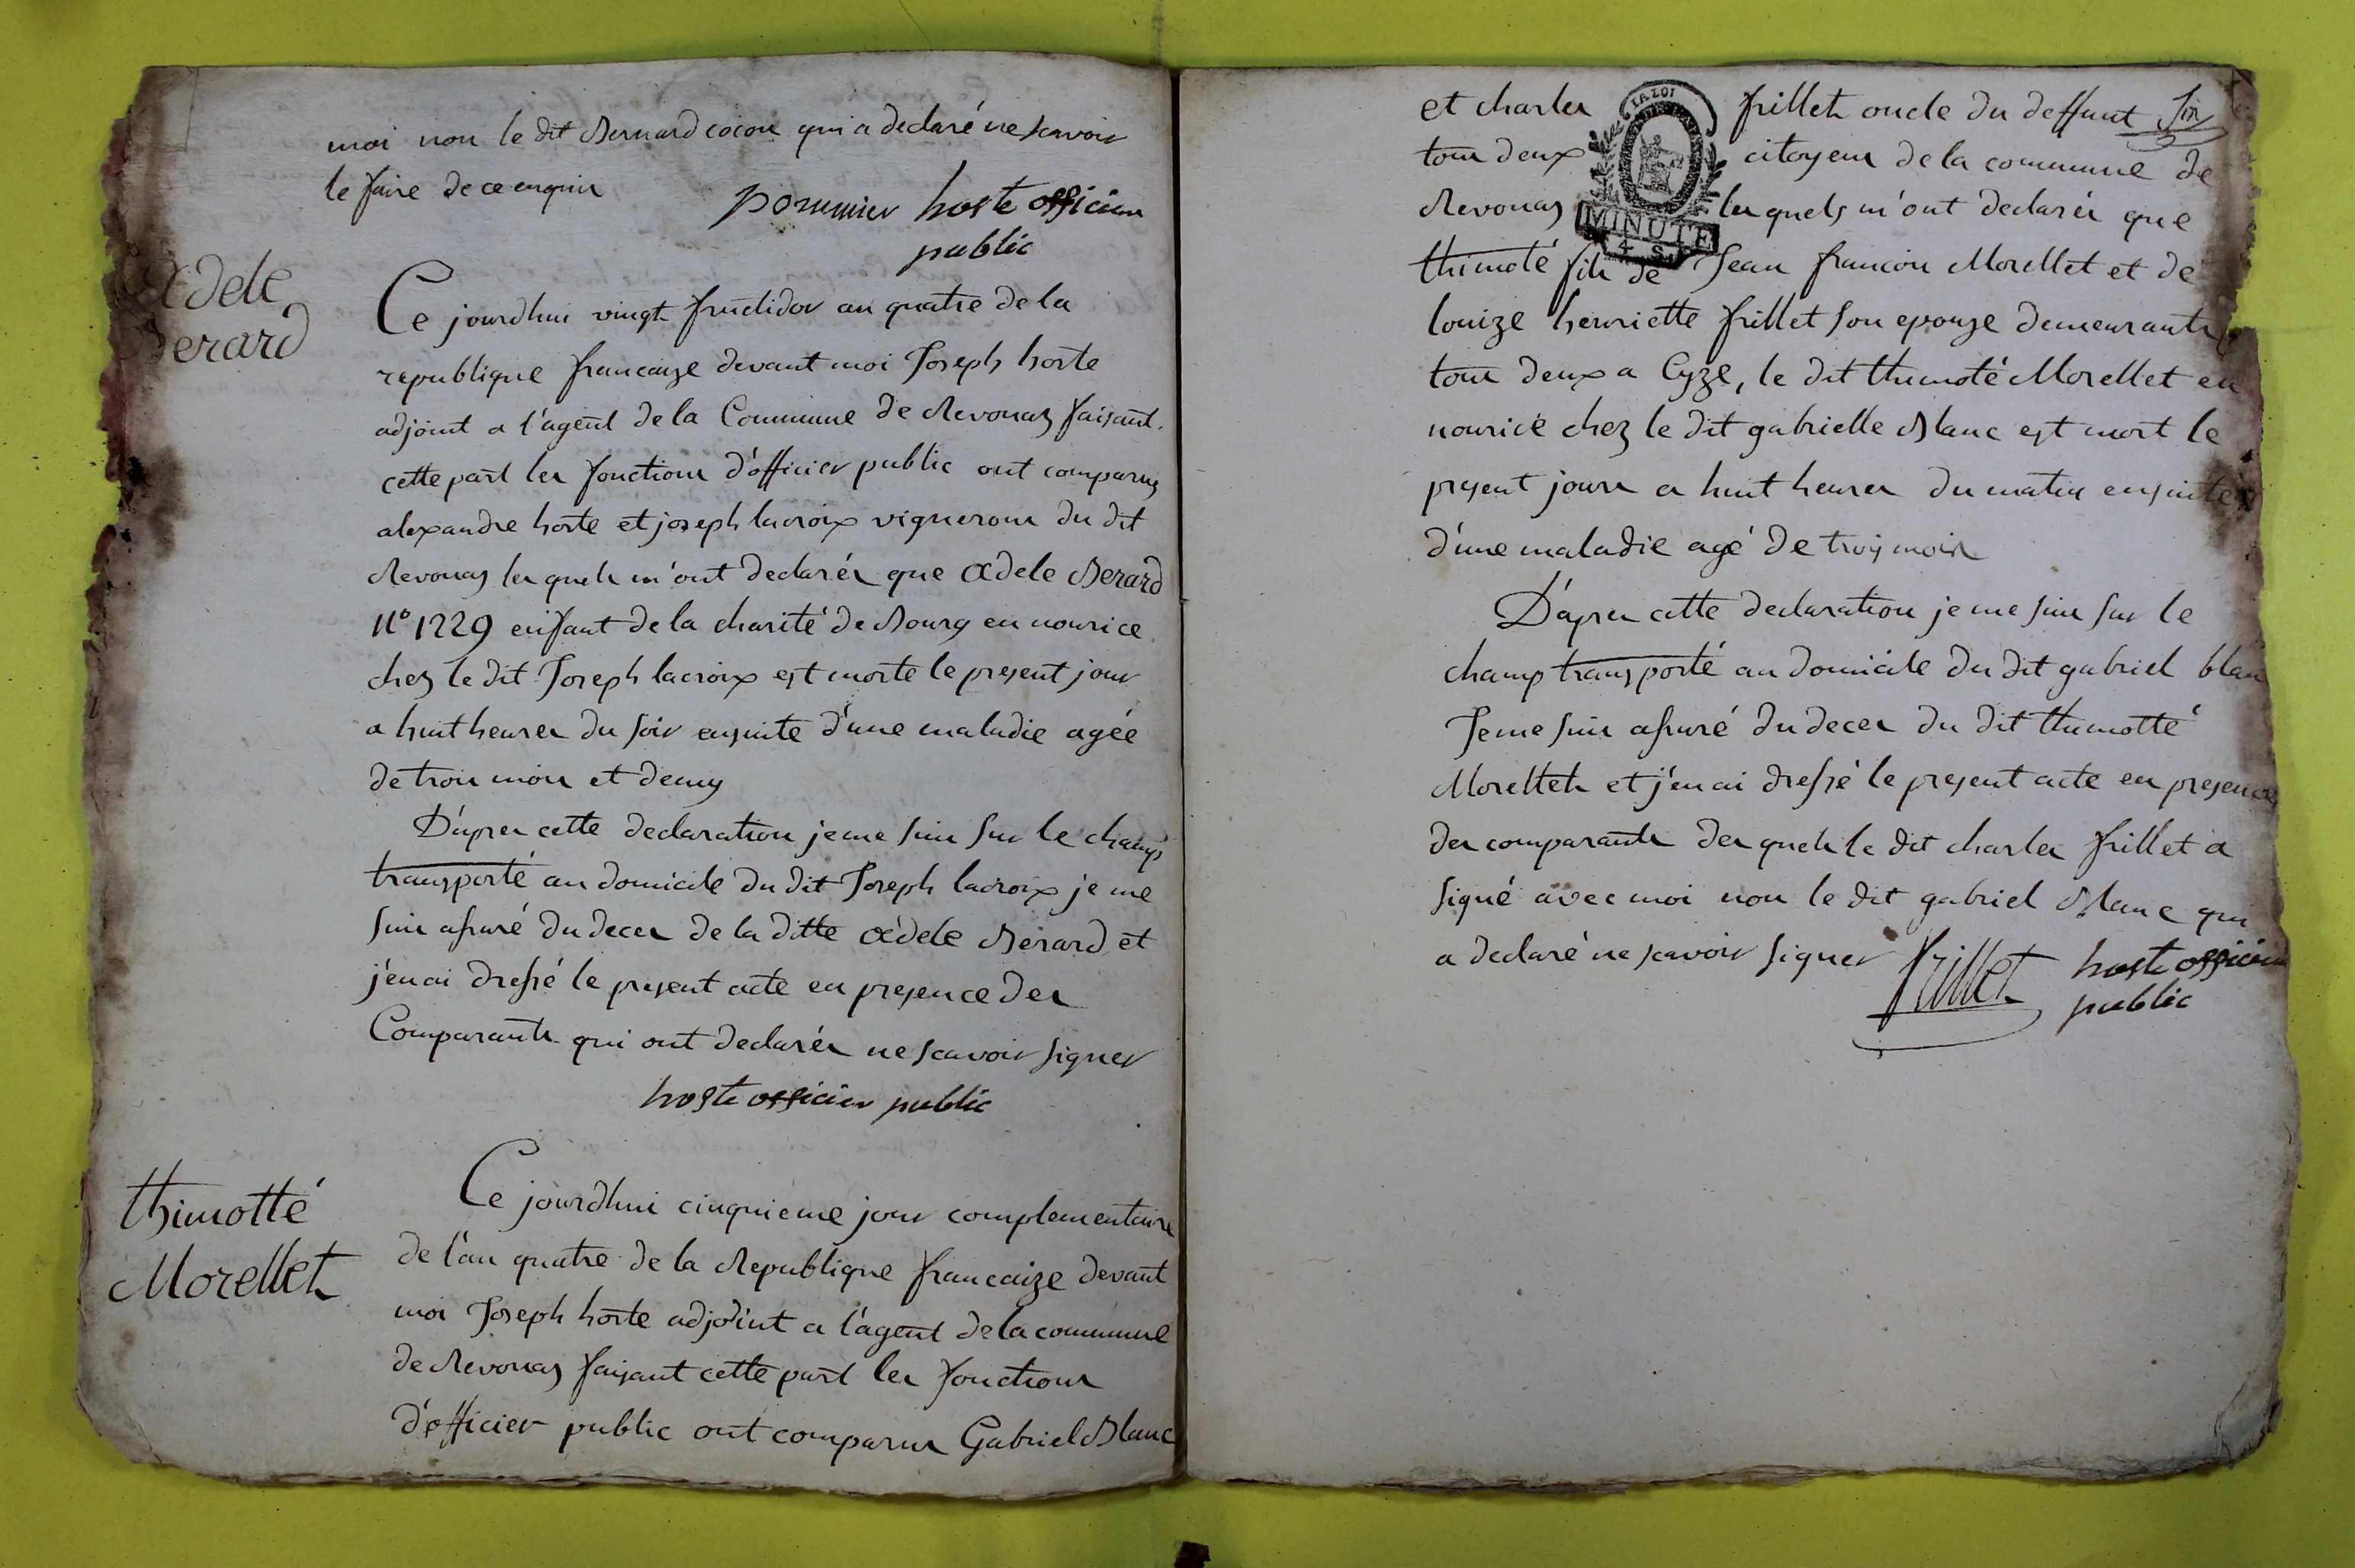 moi non le dit Bernard cocon qui a declaré ne scavoir
le faire de ce enquis
pommier hoste officier
public
Adele
Berard
Ce jourdhui vingt fructidor an quatre de la
republique francaize devant moi Joseph hoste
adjoint a l'agent de la Commune de Revonas faisant
cette part les fonctions d'officier public ont comparus
alexandre hoste et joseph lacroix vignerons du dit
Revonas les quels m'ont declarés que Adele Berard
N° 1229 enfant de la charité de Bourg en nourice
chez le dit Joseph lacroix est morte le present jour
a huit heures du soir ensuite d'une maladie agée
de trois mois et demy
D'apres cette declaration je me suis sur le champ
transporté au domicile du dit Joseph lacroix je me
suis assuré du deces de la ditte Adele Berard et
j'en ai dressé le present acte en presence des
Comparants qui ont declarés ne scavoir signer
hoste officier public
thimotté
Morellet
Ce jourdhui cinquieme jour complementaire
de l'an quatre de la Republique francaize devant
moi Joseph hoste adjoint a l'agent de la commune
de Revonas faisant cette part les fonctions
d'officier public ont comparus Gabriel Blanc
et charles frillet oncle du deffunt
tous deux citoyens de la commune de
Revonas les quels m'ont declarés que
thimoté fils de Jean francois Morellet et de
louize henriette frillet son epouze demeurants
tous deux a Cyze, le dit thimoté Morellet en
nourice chez le dit gabrielle Blanc est mort le
present jours a huit heures du matin ensuite
d'une maladie agé de trois mois
D'apres cette declaration je me suis sur le
champ transporté au domicile du dit gabriel blanc
Je me suis assuré du deces du dit thimotté
Morellet et j'en ai dressé le present acte en presence
des comparants des quels le dit charles frillet a
signé avec moi non le dit gabriel Blanc qui
a declaré ne scavoir signer frillet hoste officier
public
LA LOI
MINUTE
4 S